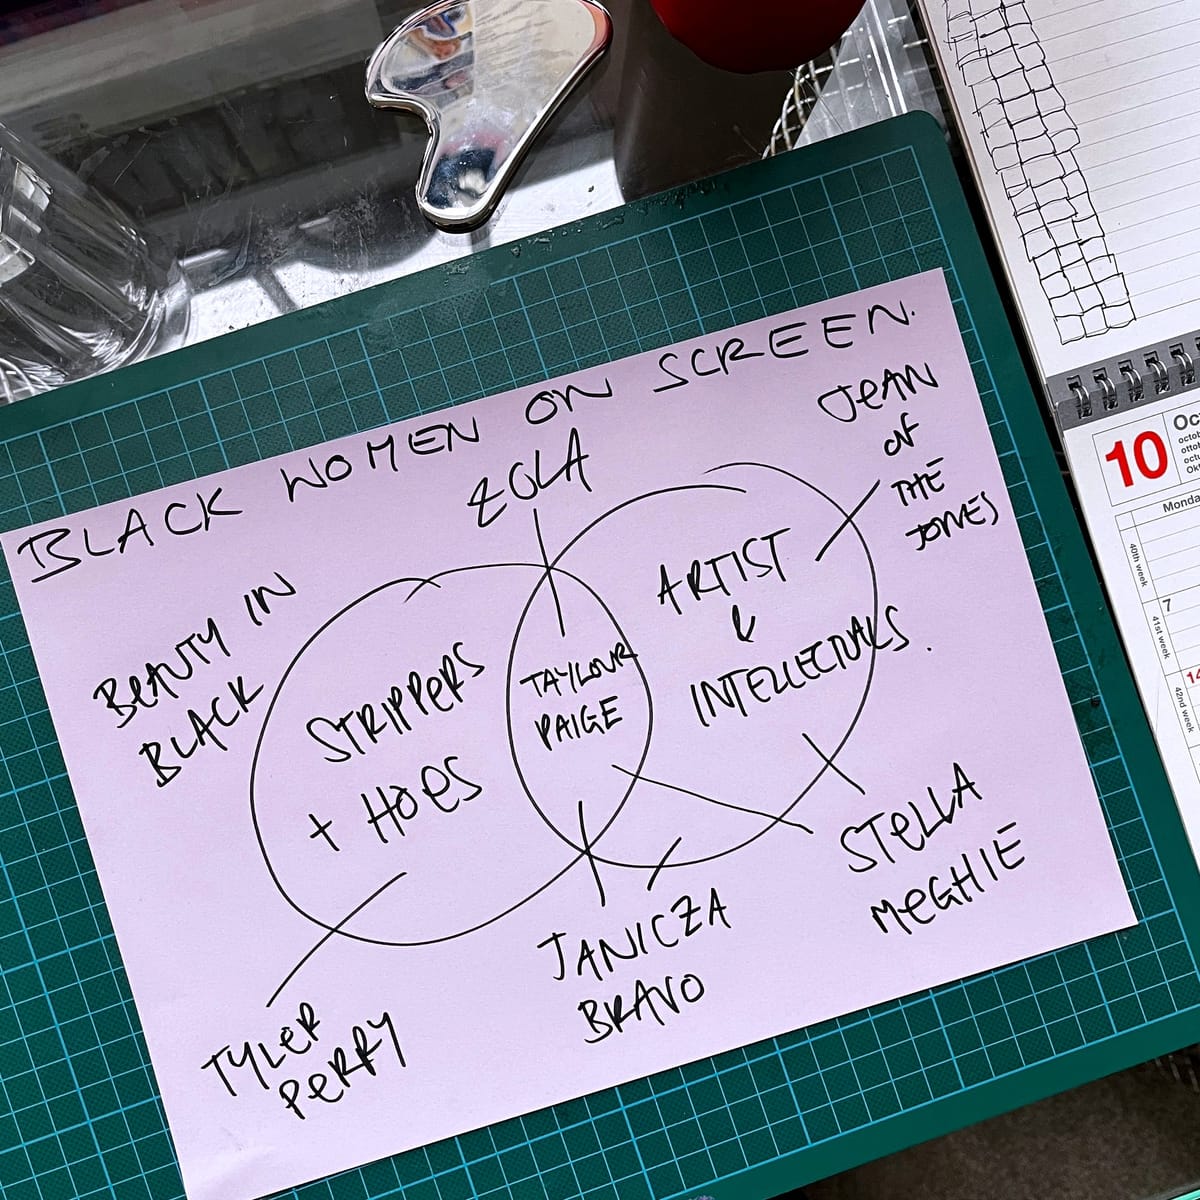 BLACK WOMEN ON SCREEN.
ZOLA
JEAN
OF
THE
JONES
BEAUTY IN
BLACK
STRIPPERS
+ HOES
TAYLOUR
PAIGE
ARTIST
&
INTELLECTUALS.
TYLER
PERRY
JANICZA
BRAVO
STELLA
MEGHIE
10
Oc
octob
ottob
octu
Okt
Monda
40th week
7
41st week
14
42nd week